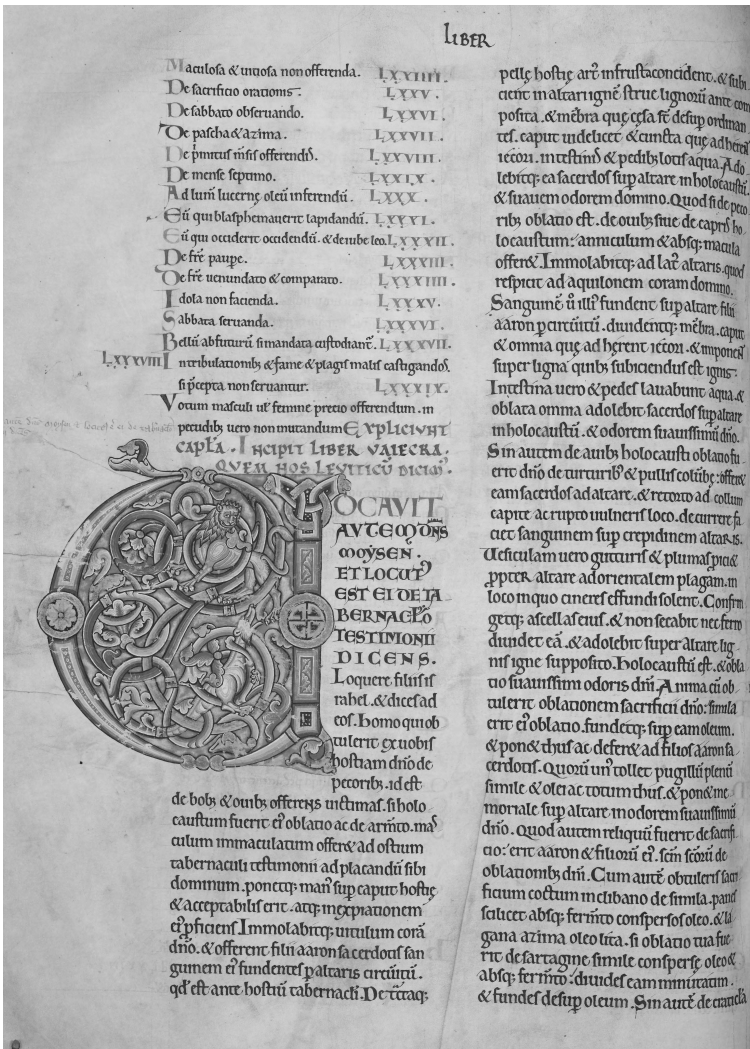 LIBER
Maculosa & uitiosa non offerenda. LXXIIII.
De sacrificio orationis. LXXV.
De sabbato obseruando. LXXVI.
De pascha & azima. LXXVII.
De p̄mitiis m̄sis offerendis. LXXVIII.
De mense septimo. LXXIX.
Ad lum̄ lucernę oleū inferendū. LXXX.
Eū qui blasphemauerit lapidandū. LXXXI.
Eū qui occiderit occidendū. & de iubeleo. LXXXII.
De fr̄e paupe. LXXXIII.
De fr̄e uenundato & comparato. LXXXIIII.
Idola non facienda. LXXXV.
Sabbata seruanda. LXXXVI.
Bellū abfuturū si mandata custodiant̄. LXXXVII.
LXXXVIII In tribulationib; & fame & plagis malis castigandos
si p̄cepta non seruantur. LXXXIX.
Votum masculi ul̄ femine precio offerendum. in
pecudib; uero non mutandum EXPLICIUNT
CAPLA. INCIPIT LIBER VAIECRA.
QUEM NOS LEVITICŪ DICIM᾽.
VOCAVIT
AUTEM DN̄S
MOYSEN.
ET LOCUT᾽
EST EI DE TA
BERNACLO
TESTIMONII
DICENS.
Loquere filiis is
rahel. & dices ad
eos. Homo qui ob
tulerit ex uobis
hostiam dn̄o de
pecorib;. id est
de bob; & ouib; offerens uictimas. si holo
caustum fuerit ei᾽ oblatio ac de arm̄to. mas
culum immaculatum offer& ad ostium
tabernaculi testimonii ad placandū sibi
dominum. ponetq; man᾽ sup caput hostię
& acceptabilis erit. atq; in expiationem
ei᾽ pficiens Immolabitq; uitulum corā
dn̄o. & offerent filii aaron sacerdotis san
guinem ei᾽ fundentes p altaris circuitū.
qd̄ est ante hostiū tabernacli. Detᷓctaq;
pelle hostię art᾽ in frusta concident. & subi
cient in altari ignē. strue lignorū ante com
posita. & mēbra quę cęsa st̄ desup ordinan
tes. caput uidelicet & cuncta que adherent
iecori. intestinis & pedib; lotis aqua. Ado
lebitq; ea sacerdos sup altare in holocaustū.
& suauem odorem domino. Quod si de peco
rib; oblatio est. de ouib; siue de capris ho
locaustum: anniculum & absq; macula
offer&. Immolabitq; ad lat᾽ altaris. quod
respicit ad aquilonem coram domino.
Sanguinē ū illi᾽ fundent sup altare filii
aaron p circuitū. diuidentq; mēbra. caput
& omnia quę adherent iecori. & imponent
super ligna quib; subiciendus est ignis:
Intestina uero & pedes lauabunt aqua. &
oblata omnia adolebit sacerdos sup altare
in holocaustū. & odorem suauissimū dn̄o.
Sin autem de auib; holocausti oblatio fu
erit dn̄o de turturib᾽ & pullis colūbę: offer&
eam sacerdos ad altare. & retorto ad collum
capite ac rupto uulneris loco. decurrere fa
ciet sanguinem sup crepidinem altaris.
Uesiculam uero gutturis & plumas pici&
ꝓpter altare ad orientalem plagam. in
loco in quo cineres effundi solent. Confrin
getq; ascellas eius. & non secabit nec ferro
diuidet eā. & adolebit super altare lig
nis igne supposito. Holocaustū est. & obla
tio suauissimi odoris dn̄i. Anima cū ob
tulerit oblationem sacrificii dn̄o: simila
erit ei᾽ oblatio. fundetq; sup eam oleum.
& pon& thus ac defer& ad filios aaron sa
cerdotis. Quorū un᾽ tollet pugillū plenū
simile & olei ac totum thus. & pon& me
moriale sup altare in odorem suauissimū
dn̄o. Quod autem reliquū fuerit de sacrifi
cio: erit aaron & filiorū ei᾽. scm̄ scōrū de
oblationib; dn̄i. Cum autē obtuleris sacri
ficium coctum in clibano de simila. panes
scilicet absq; ferm̄to conspersos oleo. & la
gana azima oleo lita. si oblatio tua fue
rit de sartagine simile conspersę oleo &
absq; ferm̄to: diuides eam minutatim.
& fundes desup oleum. Sin autē de craticla